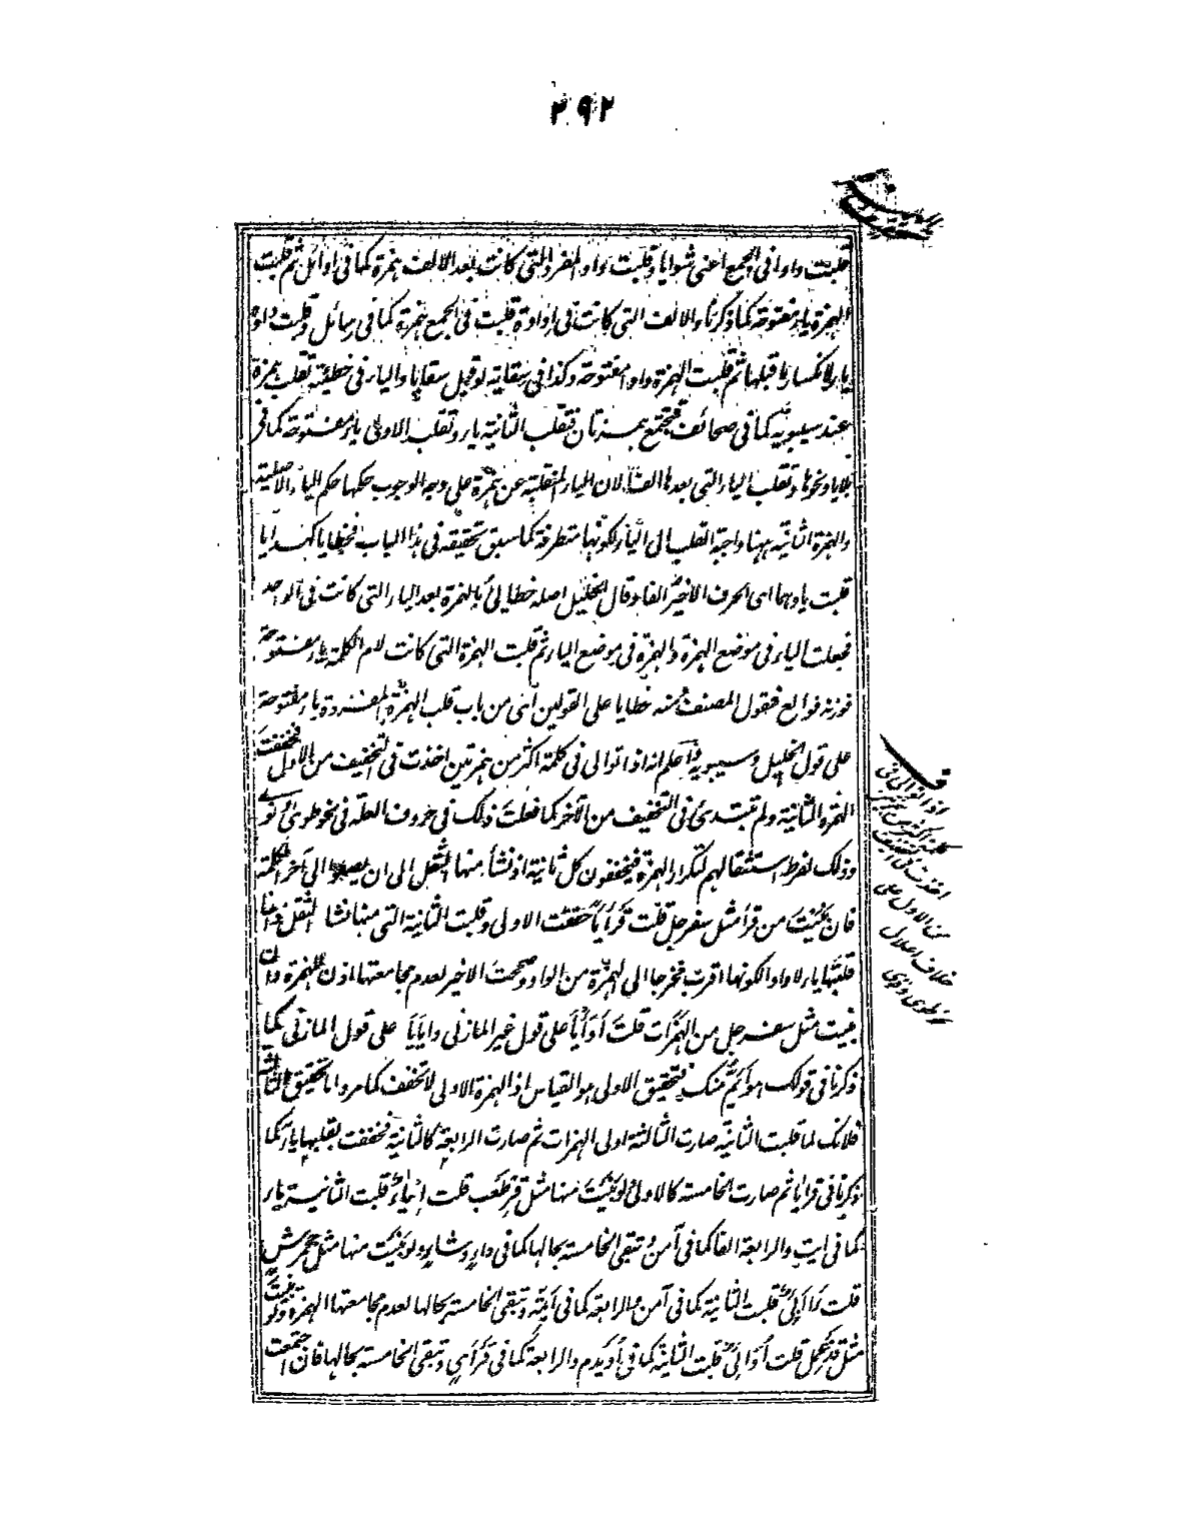 ۲۹۲
قلبت واوا فى الجمع اعنى شوايا وقلبت واو المفرد التى كانت بعد الالف همزة كما فى اوائل ثم قلبت
الهمزة ياء مفتوحة كما ذكرنا والالف التى كانت فى اداوة قلبت فى الجمع همزة كما فى رسائل وقلبت الواو
ياء لانكسار ما قبلها ثم قلبت الهمزة واوا مفتوحة وكذا فى سقاية لو قيل سقايا والياء فى خطيئة تقلب همزة
عند سيبويه كما فى صحائف فيجتمع همزتان فتقلب الثانية ياء وتقلب الاولى ياء مفتوحة كما فى
بلايا ونحوها وتقلب الياء التى بعدها الفا لان الياء المنقلبة عن همزة على وجه الوجوب حكمها حكم الياء الاصلية
والهمزة الثانية ههنا واجبة القلب الى الياء لكونها متطرفة كما سبق تحقيقه فى هذا الباب فخطايا كهدايا
قلبت ياوهما اى الحرف الاخير الفا وقال الخليل اصله خطايئ بالهمزة بعد الياء التى كانت فى الواحد
فجعلت الياء فى موضع الهمزة والهمزة فى موضع الياء ثم قلبت الهمزة التى كانت لام الكلمة ياء مفتوحة
فوزنه فوالع فقول المصنف منه خطايا على القولين اى من باب قلب الهمزة المفردة ياء مفتوحة
على قول الخليل وسيبويه واعلم انه اذا توالى فى كلمة اكثر من همزتين اخذت فى التخفيف من الاول فخففت
الهمزة الثانية ولم تبتدئ فى التخفيف من الآخر كما فعلت ذلك فى حروف العلة فى نحو طوى ونوى
وذلك لفرط استثقالهم لتكرار الهمزة فيخففون كل ثانية اذ نشأ منها الثقل الى ان يصلوا الى آخر الكلمة
فان بنيت من قرأ مثل سفرجل قلت قرأيأ حققت الاولى وقلبت الثانية التى منها نشأ الثقل وانما
قلبتها ياء لا واوا لكونها اقرب مخرجا الى الهمزة من الواو وصححت الاخير لعدم مجامعتها اذن للهمزة وان
بنيت مثل سفرجل من الهمزات قلت أوأيأ على قول غير المازنى واياَيأ على قول المازنى كما
ذكرنا فى قولك هو أيم منك فتحقيق الاولى هو القياس اذ الهمزة الاولى لا تخفف كما مر واما تحقيق الثالثة
فلانك لما قلبت الثانية صارت الثالثة اولى الهمزات ثم صارت الرابعة كالثانية فخففت بقلبها ياء كما
ذكرنا فى قرأيأ ثم صارت الخامسة كالاولى ولو بنيت منها مثل قرطعب قلت إيئاء قلبت الثانية ياء
كما فى ايت والرابعة الفا كما فى آمن وتبقى الخامسة بحالها كما فى داء وشاء ولو بنيت منها مثل جحمرش
قلت قلبت الثانية كما فى آمن والرابعة كما فى أيمة وتبقى الخامسة بحالها لعدم مجامعتها الهمزة ولو بنيت
مثل قذعمل قلت قلبت الثانية كما فى أويدم والرابعة كما فى قرأي وتبقى الخامسة بحالها فان اجتمعت
اذا توالى فى
كلمة اكثر من همزتين
اخذت فى التخفيف
من الاول على
خلاف اعلال
نحو طوى ونوى